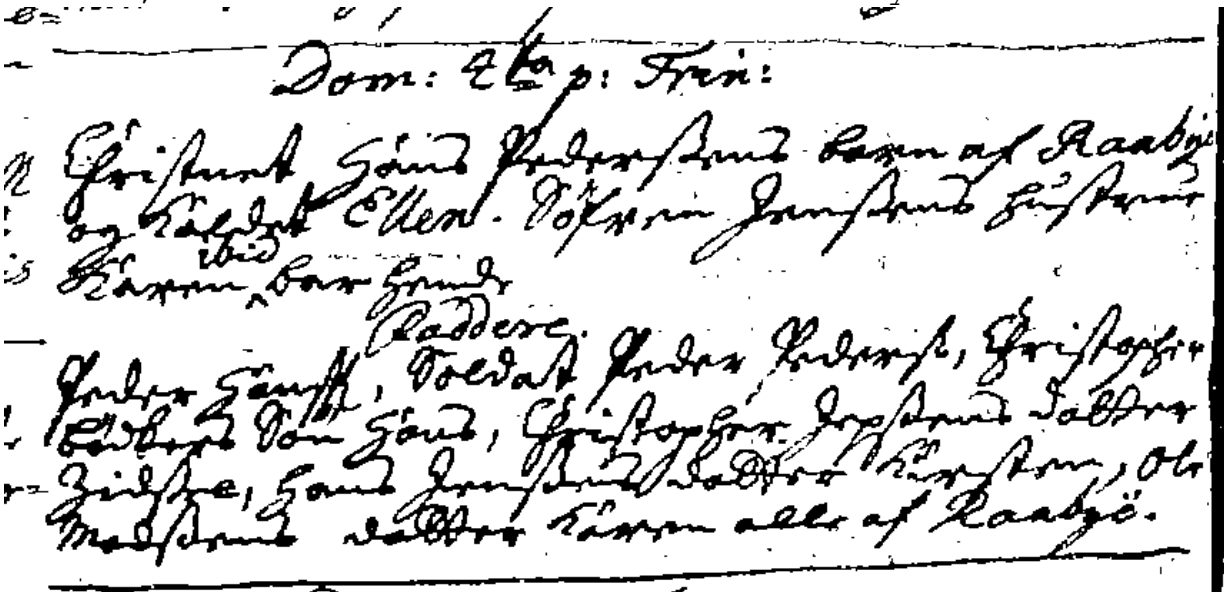 Dom: 4ta p: Trin:
Christnet Hans Pederßens barn af Raabye
og kaldet Ellen. Söfren Jenßens hustrue
Karen ibid bar hende
Faddere.
Peder Hanß, Soldat Peder Pederß, Christopher
bödkers Sön Hans, Christopher Jepßens dotter
Zidsze, Hans Jenßens dotter Kirsten, Ole
Madßens dotter Karen alle af Raabye.